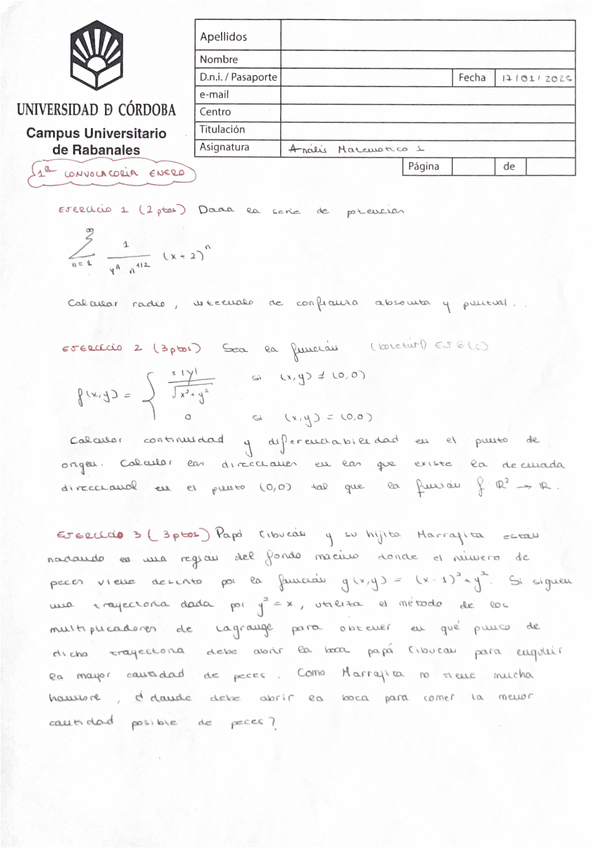 Apellidos
Nombre
D.n.i. / Pasaporte
Fecha 17/01/2025
e-mail
UNIVERSIDAD Ð CÓRDOBA
Centro
Campus Universitario
de Rabanales
Titulación
Asignatura Análisis Matemático 1
Página de
1ª CONVOCATORIA ENERO
EJERCICIO 1 (2 ptos) Dada la serie de potencias
∞
∑ 1/(4^n n^{1/2}) (x+2)^n
n=1
Calcular radio, intervalo de confianza absoluta y puntual..
EJERCICIO 2 (3 ptos) Sea la función (boletín 1) EJ 6 (c)
f(x,y) = { x|y| / √(x²+y²) si (x,y) ≠ (0,0)
0 si (x,y) = (0,0)
Calcular continuidad y diferenciabilidad en el punto de
origen. Calcular las direcciones en las que existe la derivada
direccional en el punto (0,0) tal que la función f ℝ² → ℝ.
EJERCICIO 3 (3 ptos) Papá Cibucán y su hijita Marrajita están
nadando en una región del fondo marino donde el número de
peces viene descrito por la función g(x,y) = (x-1)²+y². Si siguen
una trayectoria dada por y² = x, utiliza el método de los
multiplicadores de Lagrange para obtener en qué punto de
dicha trayectoria debe abrir la boca papá Cibucan para engullir
la mayor cantidad de peces. Como Marrajita no tiene mucha
hambre, ¿dónde debe abrir la boca para comer la menor
cantidad posible de peces?